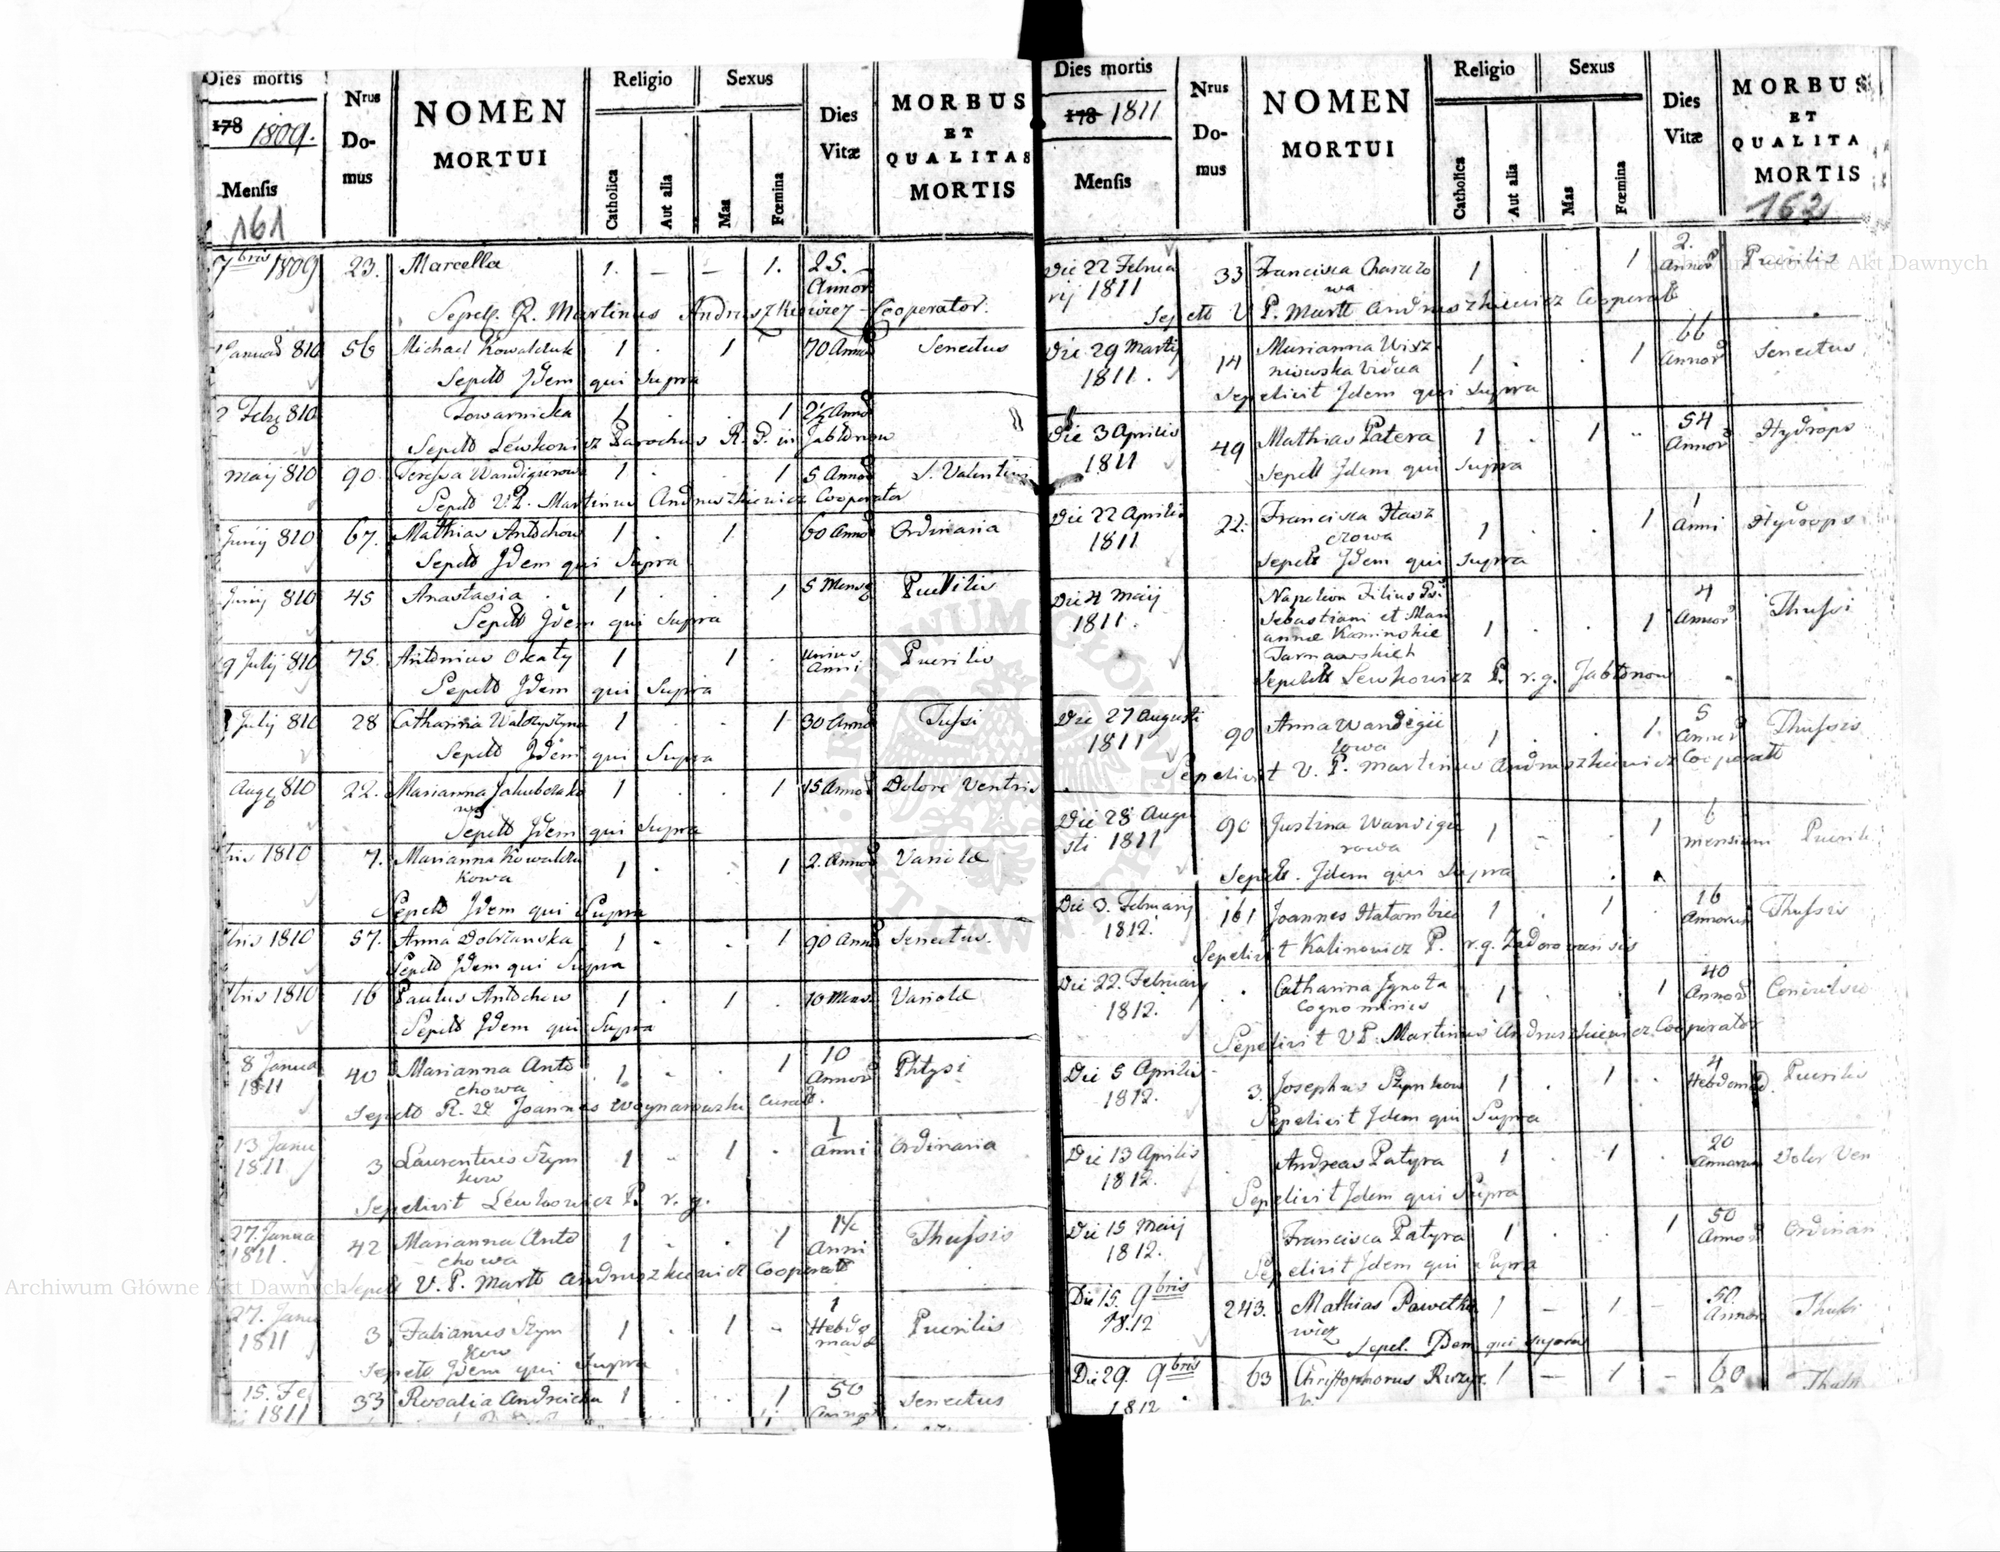 Dies mortis
178 1809.
Mensis
161
Nrus
Do-
mus
NOMEN
MORTUI
Religio
Catholica
Aut alia
Sexus
Mas
Fœmina
Dies
Vitæ
MORBUS
ET
QUALITAS
MORTIS
7bris 1809 23. Marcella 1. — — 1. 25. Annor
Sepelt. R. Martinus Andruszkiewicz Cooperator.
810 56 Michael Kowalczuk 1 . 1 70 Annor Senectus
Sepelt Idem qui Supra
2 Febr 810 Towarnicka 1 . . 1 2½ Annor
Sepelt Lewkowicz Parochus R. G. in Jabłonow
maij 810 90. Teressa Wandigierowa 1 . . 1 5 Annor S. Valentini
Sepelt V. P. Martinus Andruszkiewicz Cooperator
Junij 810 67. Mathias Antochow 1 . 1 60 Annor Ordinaria
Sepelt Idem qui Supra
Junij 810 45 Anastasia 1 . . 1 5 Mens Puerilis
Sepelt Idem qui Supra
9 Julij 810 75. Antonius 1 . 1 . unius Anni Puerilis
Sepelt Idem qui Supra
Julij 810 28 Catharina 1 . . 1 30 Annor Tussi
Sepelt Idem qui Supra
Aug 810 22. Marianna 1 . . 1 15 Annor Dolore Ventris
Sepelt Idem qui Supra
bris 1810 7. Marianna Kowalczukowa 1 . . 1 2. Annor Variolæ
Sepelt Idem qui Supra
bris 1810 57. Anna Dobrzanska 1 . . 1 90 Annor Senectus.
Sepelt Idem qui Supra
bris 1810 16 Paulus Antochow 1 . 1 10 Mens Variolæ
Sepelt Idem qui Supra
8 Janua 1811 40 Marianna Antochowa 1 . . 1 10 Annor Phtysi
Sepelt R. D. Joannes Curat.
13 Janu 1811 3 Laurentius Szymkow 1 . 1 . 1 Anni Ordinaria
Sepelivit Lewkowicz P. r. g.
27. Janua 1811. 42 Marianna Antochowa 1 . . 1 1½ Anni Thussis
Sepelt V. P. Martt Andruszkiewicz Cooperatt
27. Janu 1811 3 Fabianus Szymkow 1 . 1 - 1 Hebdomada Puerilis
Sepelt Idem qui Supra
15. Fe 1811 33 Rosalia 1 . . 1 50 Annor Senectus
Dies mortis
178 1811
Mensis
Nrus
Do-
mus
NOMEN
MORTUI
Religio
Catholica
Aut alia
Sexus
Mas
Fœmina
Dies
Vitæ
MORBUS
ET
QUALITA
MORTIS
162
Die 22 Februarij 1811 33 Francisca 1 . . 1 2. Annor Puerilis
Sepelt V P. Martt Andruszkiewicz Cooperatt
Die 29 Martij 1811. 14 Marianna Wiszniewska Vidua 1 . . 1 66 Annor Senectus
Sepelivit Idem qui Supra
Die 3 Aprilis 1811 49 Mathias Patera 1 . 1 .. 54 Annor Hydrops
Sepelt Idem qui Supra
Die 22 Aprilis 1811 22. Francisca 1 . . 1 1 Anni Hydrops
Sepelt Idem qui Supra
Die 4 Maij 1811. Napoleon Filius
Sebastiani et Mari
annæ Kaminskie
Tarnawskich 1 . . 1 4 Annor Thussi
Sepelt Lewkowicz P. r. g. Jabłonow
Die 27 Augusti 1811 90 Anna Wandigierowa 1 . . 1. 5 Annor Thussis
Sepelivit V. P. Martinus Andruszkiewicz Cooperatt
Die 28 Augusti 1811 90 Justina Wandigierowa 1 . . 1 6 mensium Puerili
Sepelt. Idem qui Supra
Die 3. Februarij 1812. 161 Joannes 1 . 1 . 16 Annorum Thussis
Sepelivit Kalinowicz P. r. g. Zadorovensis
Die 22. Februarij 1812. . Catharina Ignota Cognominis 1 . . 1 40 Annor
Sepelivit V P. Martinus Andruszkiewicz Cooperator
Die 5 Aprilis 1812. 3. Josephus Szymkow 1 . 1 . 4 Hebdomad. Puerilis
Sepelivit Idem qui Supra
Die 13 Aprilis 1812. Andreas Patyra 1 . 1 . 20 Annorum Dolor Ven
Sepelivit Idem qui Supra
Die 15 Maij 1812. Francisca Patyra 1 . . 1 50 Annor Ordinari
Sepelivit Idem qui Supra
Die 15. 9bris 1812 243. Mathias Pawełkiewicz 1 — 1 — 50. Annor Thussi
Sepel. Idem qui supra
Die 29. 9bris 1812 63 Christophorus 1 — 1 — 60
Archiwum Główne Akt Dawnych
Archiwum Główne Akt Dawnych
ARCHIWUM GŁÓWNE AKT DAWNYCH